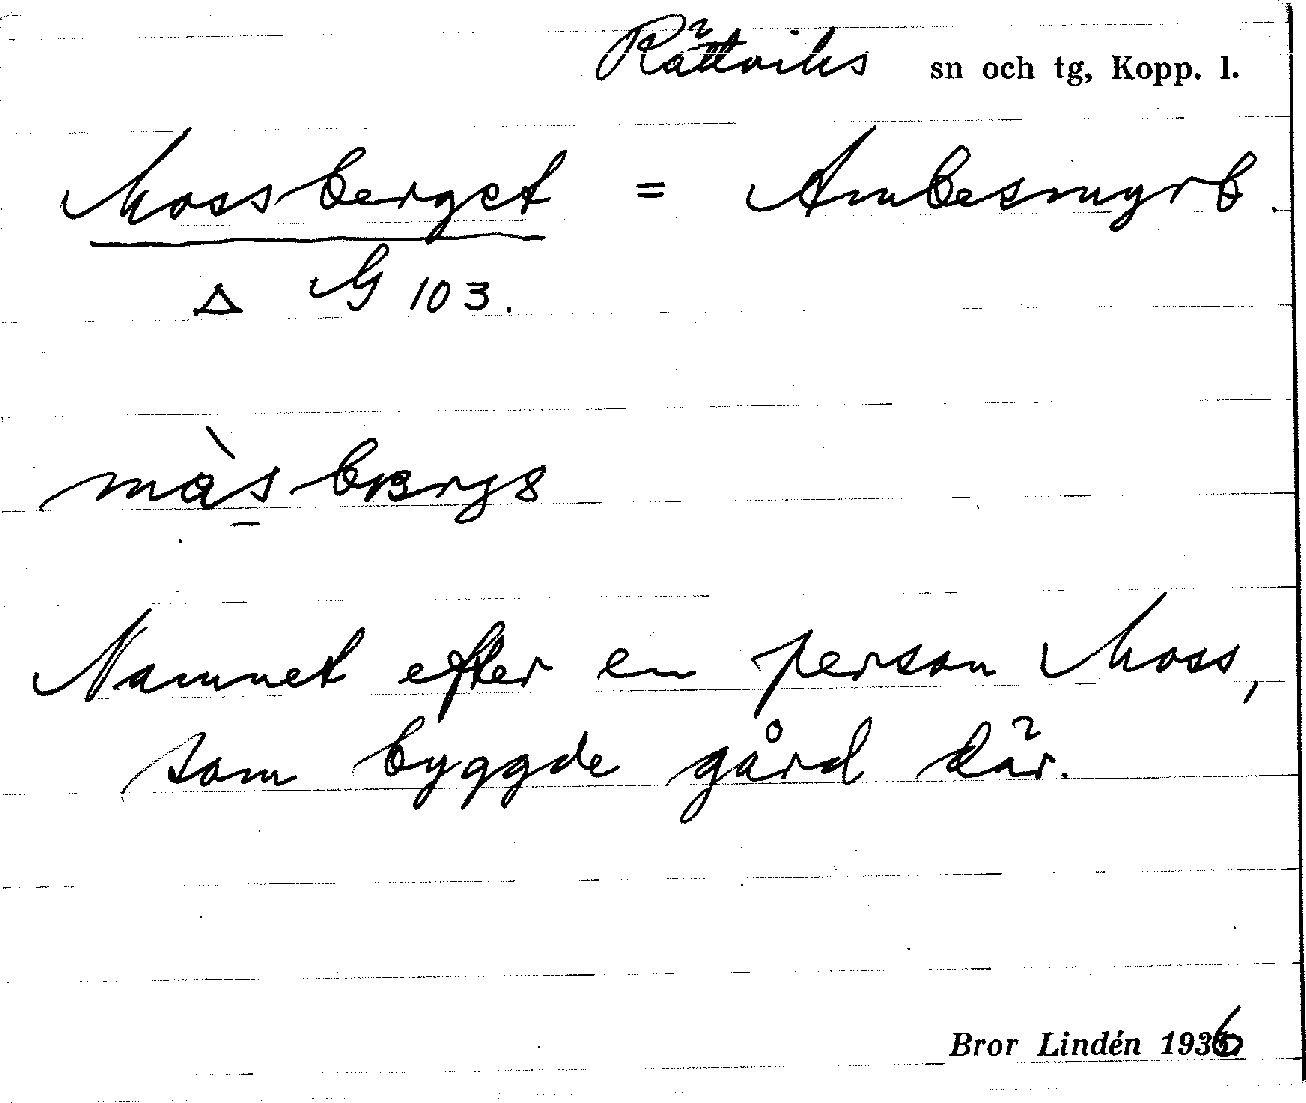 Rättviks sn och tg, Kopp. l.
Mossberget = Ambesmyrb.
△ G 103.
Namnet efter en person Moss,
som byggde gård där.
Bror Lindén 1936